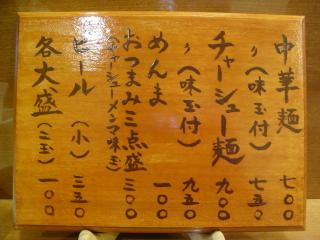 中華麺 七〇〇
〃(味玉付) 七五〇
チャーシュー麺 九〇〇
〃(味玉付) 九五〇
めんま 一〇〇
おつまみ三点盛 三〇〇
(チャーシューメンマ味玉)
ビール(小) 三五〇
各大盛(二玉) 一〇〇